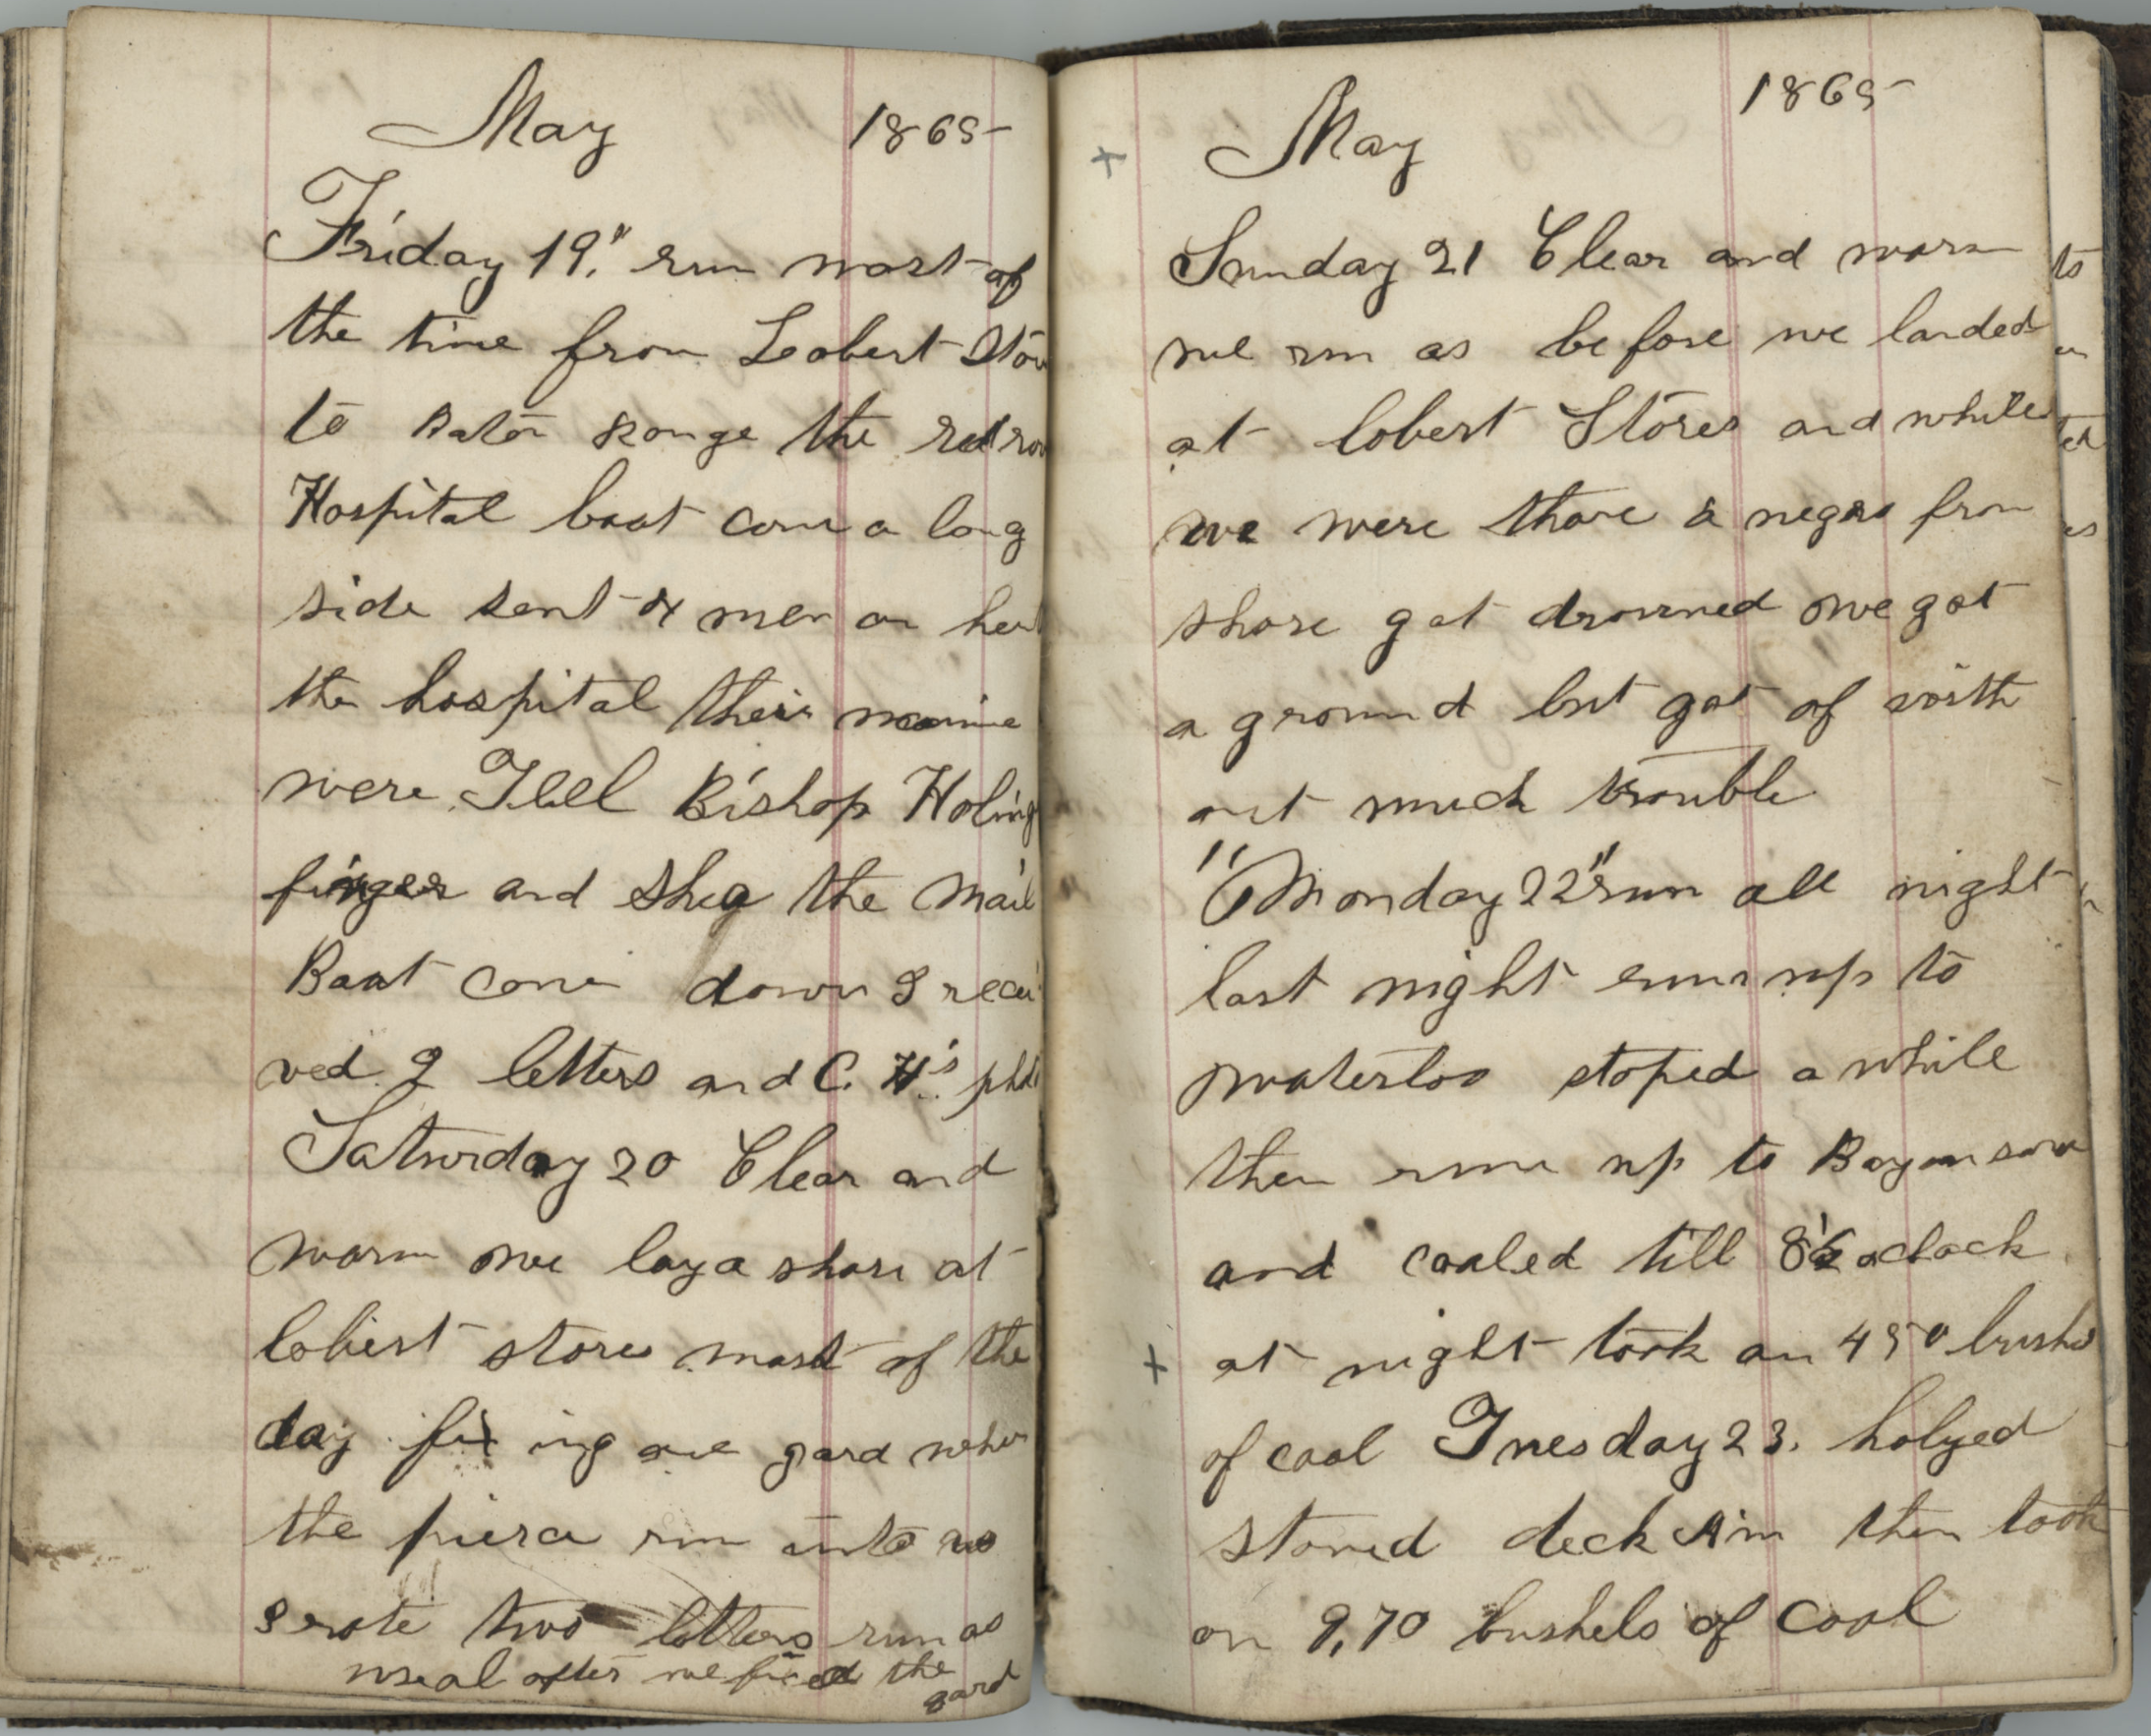 May 1865
Friday 19," run most of
the time from Lobert Stor
to Baton Rouge the red rov
Hospital boat come a long
side sent 4 men on her
the hospital their
were Bishop Holing
finger and the Mail
Boat come down I recei
ved 2 letters and C. H's pho
Saturday 20 Clear and
warm we lay a shore at
lobert stores most of the
day fix ing our gard wher
the pierce run into us
I rote two letters run as
useal after we fixed the
gard
May 1865
Sunday 21 Clear and warm
we run as before we landed
at lobert Stores and while
we were thare a negro from
shore got drowned we got
a ground but got of with
out much trouble
"Monday 22" run all night
last night run up to
Waterloo stoped a while
then run up to Bayou sara
and coaled till 8 oclock
at night took on 450 bushe
of coal Tuesday 23. holyed
stoned deck A'm then took
on 9,70 bushels of coal